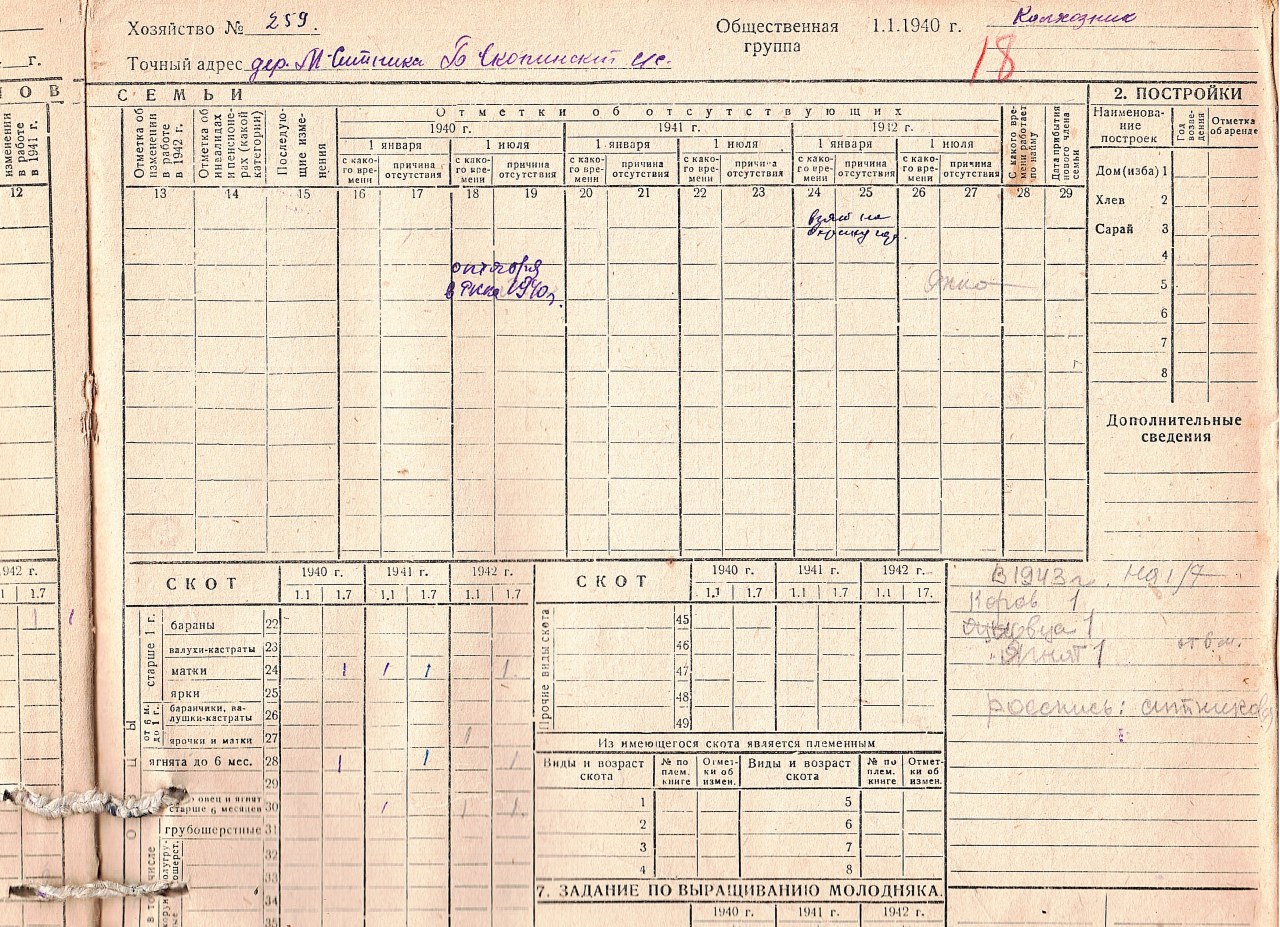 Хозяйство № 259.
Общественная группа 1.1.1940 г. Колхозник
Точный адрес дер. М-Ситники Б Скопинский с/с.
18
г.
НОВ
СЕМЬИ
2. ПОСТРОЙКИ
изменении в работе в 1941 г.
Отметка об изменении в работе в 1942 г.
Отметка об инвалидах и пенсионерах (какой категории)
Последующие изменения
Отметки об отсутствующих
1940 г. 1941 г. 1942 г.
1 января 1 июля 1 января 1 июля 1 января 1 июля
с како-го вре-мени причина отсутствия с како-го вре-мени причина отсутствия с како-го вре-мени причина отсутствия с како-го вре-мени причина отсутствия с како-го вре-мени причина отсутствия с како-го вре-мени причина отсутствия
С какого вре-мени работает по найму
Дата прибытия нового члена семьи
Наименова-ние построек
Год возве-дения
Отметка об аренде
12 13 14 15 16 17 18 19 20 21 22 23 24 25 26 27 28 29
Дом (изба) 1
Хлев 2
Сарай 3
4
5
6
7
8
взят на
октября
в РККА 1940 г.
Дополнительные
сведения
1942 г.
1 1.7
СКОТ 1940 г. 1941 г. 1942 г.
1.1 1.7 1.1 1.7 1.1 1.7
старше 1 г.
бараны 22
валухи-кастраты 23
матки 24 1 1 1 1
ярки 25
от 6 м. до 1 г.
баранчики, ва-лушки-кастраты 26
ярочки и матки 27 1
ягнята до 6 мес. 28 1 1 1
29
овец и ягнят
старше 6 месяцев 30 1 1 1
грубошерстные 31
32
33
34
35
в том числе
СКОТ 1940 г. 1941 г. 1942 г.
1.1 1.7 1.1 1.7 1.1 17.
Прочие виды скота
45
46
47
48
49
Из имеющегося скота является племенным
Виды и возраст скота № по плем. книге Отмет-ки об измен. Виды и возраст скота № по плем. книге Отмет-ки об измен.
1 5
2 6
3 7
4 8
7. ЗАДАНИЕ ПО ВЫРАЩИВАНИЮ МОЛОДНЯКА.
1940 г. 1941 г. 1942 г.
В 1943 г. на 1/7
Коров 1
овца 1
Ягнят 1 от 6 м.
роспись: Ситникова